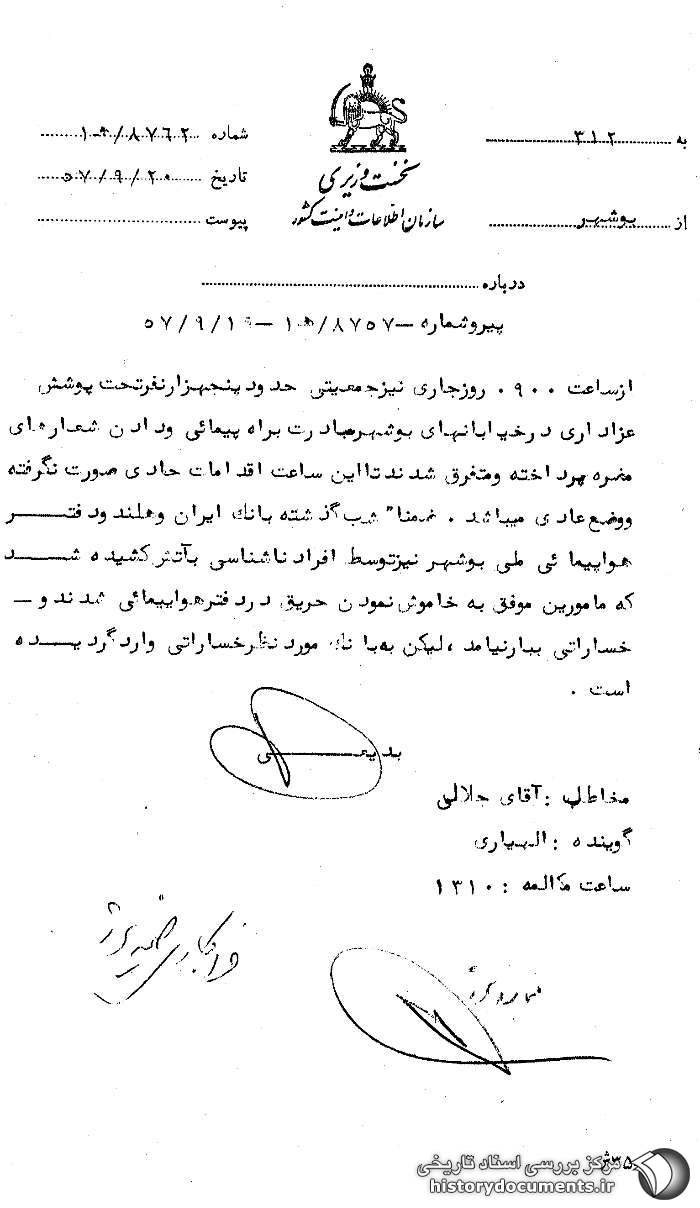 به ۳۱۲
شماره ۱۰ه/۸۷۶۲
نخست وزیری
تاریخ ۵۷/۹/۲۰
سازمان اطلاعات و امنیت کشور
از بوشهر
پیوست
درباره
پیرو شماره – ۸۷۵۷/ه۱۰ – ۵۷/۹/۱۹
از ساعت ۰۹۰۰ روز جاری نیز جمعیتی حدود پنجهزار نفر تحت پوشش
عزاداری در خیابانهای بوشهر مبادرت براه پیمائی و دادن شعارهای
مضره پرداخته و متفرق شدند تا این ساعت اقدامات حادی صورت نگرفته
و وضع عادی میباشد . ضمنا" شب گذشته بانك ایران و هلند و دفتر
هواپیمائی ملی بوشهر نیز توسط افراد ناشناسی بآتش کشیده شد
که مامورین موفق به خاموش نمودن حریق در دفتر هواپیمائی شدند و –
خساراتی ببار نیامد ، لیکن به بانك مورد نظر خساراتی وارد گردیده
است .
بدیعی
مخاطب : آقای جلالی
گوینده : الهیاری
ساعت مکالمه : ۱۳۱۰
۳۵
مرکز بررسی اسناد تاریخی
historydocuments.ir